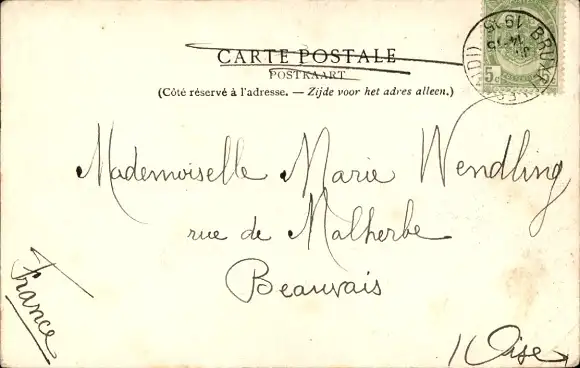 CARTE POSTALE
POSTKAART
(Côté réservé à l'adresse. — Zijde voor het adres alleen.)
5c
Mademoiselle Marie Wendling
rue de Malherbe
Beauvais
Oise
France